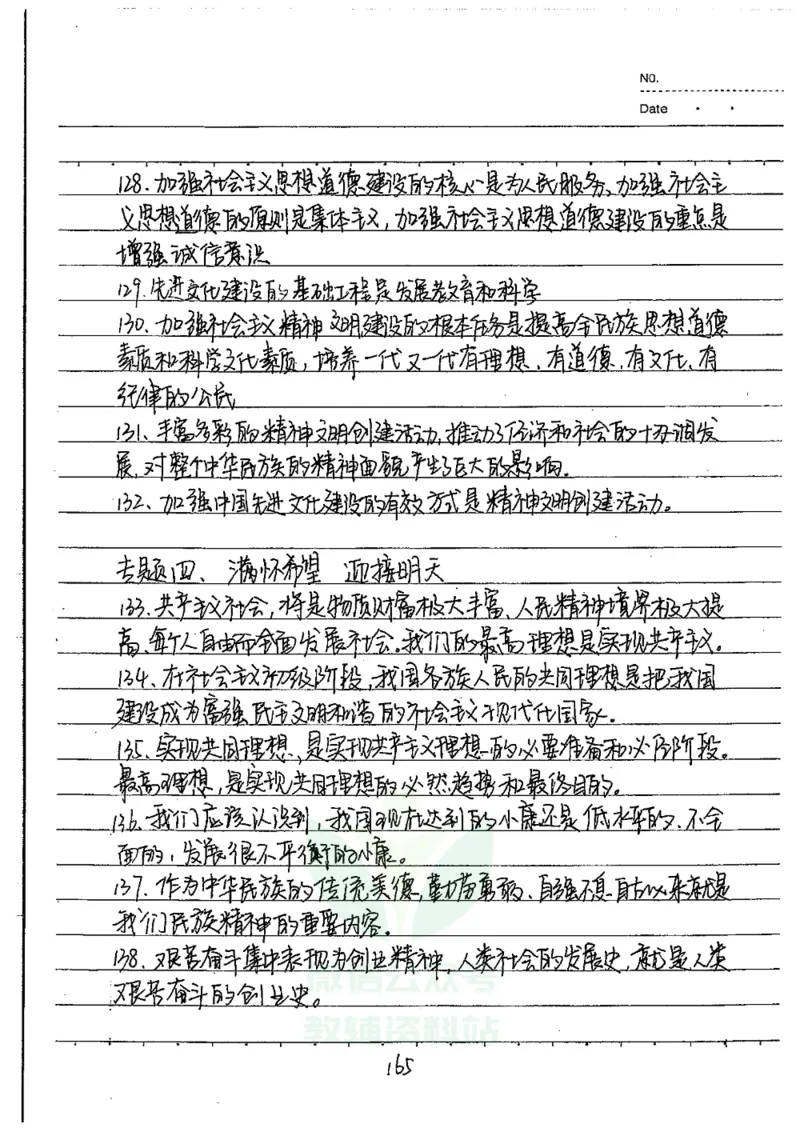 No.
Date
128.加强社会主义思想道德建设的核心是为人民服务、加强社会主
义思想道德的原则是集体主义,加强社会主义思想道德建设的重点是
增强诚信意识
129.先进文化建设的基础工程是发展教育和科学
130.加强社会主义精神文明建设的根本任务是提高全民族思想道德
素质和科学文化素质,培养一代又一代有理想、有道德、有文化、有
纪律的公民
131、丰富多彩的精神文明创建活动,推动了经济和社会的协调发
展,对整个中华民族的精神面貌产生了巨大的影响。
132、加强中国先进文化建设的有效方式是精神文明创建活动。
专题四、满怀希望 迎接明天
133.共产主义社会,将是物质财富极大丰富、人民精神境界极大提
高、每个人自由而全面发展社会。我们的最高理想是实现共产主义。
134、在社会主义初级阶段,我国各族人民的共同理想是把我国
建设成为富强民主文明和谐的社会主义现代化国家。
135、实现共同理想,是实现共产主义理想的必要准备和必经阶段。
最高理想,是实现共同理想的必然趋势和最终目的。
136、我们应该认识到,我国现在达到的小康还是低水平的、不全
面的,发展很不平衡的小康。
137、作为中华民族的传统美德,勤劳勇敢、自强不息自古以来就是
我们民族精神的重要内容。
138、艰苦奋斗集中表现为创业精神,人类社会的发展史,就是人类
艰苦奋斗的创业史。
微信公众号
教辅资料站
165